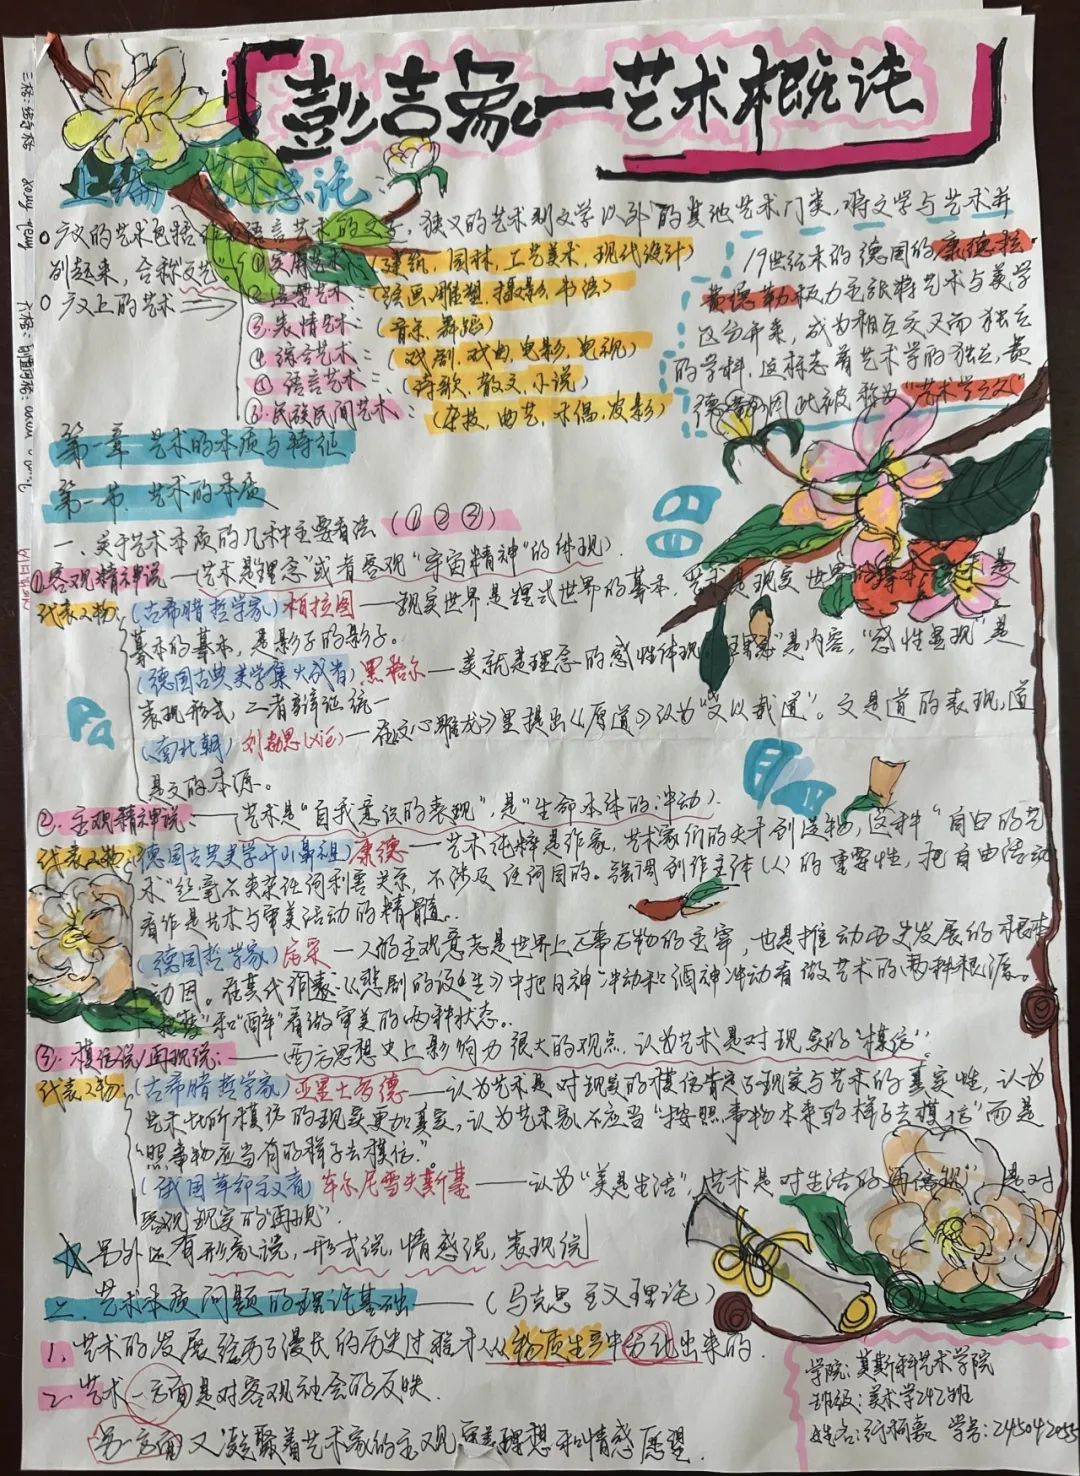 彭吉象—艺术概论
上编 术总论:
广义的艺术包括作为语言艺术的文学, 狭义的艺术则文学以外的其他艺术门类, 将文学与艺术并
列起来, 合称文艺
广义上的艺术 ⇒
①实用艺术: (建筑, 园林, 工艺美术, 现代设计)
②造型艺术: (绘画, 雕塑, 摄影, 书法)
③表情艺术: (音乐, 舞蹈)
④综合艺术: (戏剧, 戏曲, 电影, 电视)
⑤语言艺术: (诗歌, 散文, 小说)
⑥民族民间艺术: (杂技, 曲艺, 木偶, 皮影)
19世纪末的德国的康德拉·
费德勒极力主张将艺术与美学
区分开来, 成为相互交叉而独立
的学科, 这标志着艺术学的独立, 费
德勒因此被称为"艺术学之父"
第一章 艺术的本质与特征
第一节 艺术的本质
一、关于艺术本质的几种主要看法 (①②③)
①客观精神说—(艺术是"理念"或者客观"宇宙精神"的体现).
代表人物: (古希腊哲学家)柏拉图——现实世界是理式世界的摹本, 艺术是现实世界的摹本, 是
摹本的摹本, 是影子的影子。
(德国古典美学集大成者)黑格尔—美就是理念的感性体现, "理念"是内容, "感性显现"是
表现形式, 二者辩证统一
(南北朝) 刘勰(xié)—在《文心雕龙》里提出《原道》认为"文以载道"。文是道的表现, 道
是文的本源。
②. 主观精神说:——(艺术是"自我意识的表现", 是"生命本体的冲动").
代表人物: (德国古典美学开山鼻祖)康德—艺术纯粹是作家, 艺术家们的天才创造物, 这种"自由的艺
术"丝毫不夹杂任何利害关系, 不涉及任何目的。强调创作主体(人)的重要性, 把自由活动
看作是艺术与审美活动的精髓。
(德国哲学家)尼采—人的主观意志是世界上万事万物的主宰, 也是推动历史发展的根本
动因。在其代表《悲剧的诞生》中把日神冲动和酒神冲动看做艺术的两种根源。
把"梦"和"醉"看做审美的两种状态。
③. 模仿说/再现说:——西方思想史上影响力很大的观点, 认为艺术是对现实的"模仿".
代表人物: (古希腊哲学家)亚里士多德——认为艺术是对现实的模仿肯定了现实与艺术的真实性, 认为
艺术比所模仿的现实更加真实, 认为艺术家不应当"按照事物本来的样子去模仿"而是
"照事物应当有的样子去模仿"。
(俄国革命主义者 车尔尼雪夫斯基——认为"美是生活", 艺术是对生活的再 , 是对
客观现实的"再现".
☆另外还有形象说, 形式说, 情感说, 表现说
二. 艺术本质问题的理论基础——(马克思主义理论)
1. 艺术的发展经历了漫长的历史过程才从物质生产中分化出来的.
2 艺术一方面是对客观社会的反映.
另一方面又凝聚着艺术家的主观审美理想和情感愿望.
学院: 莫斯科艺术学院
班级: 美术学242班
姓名: 学号: